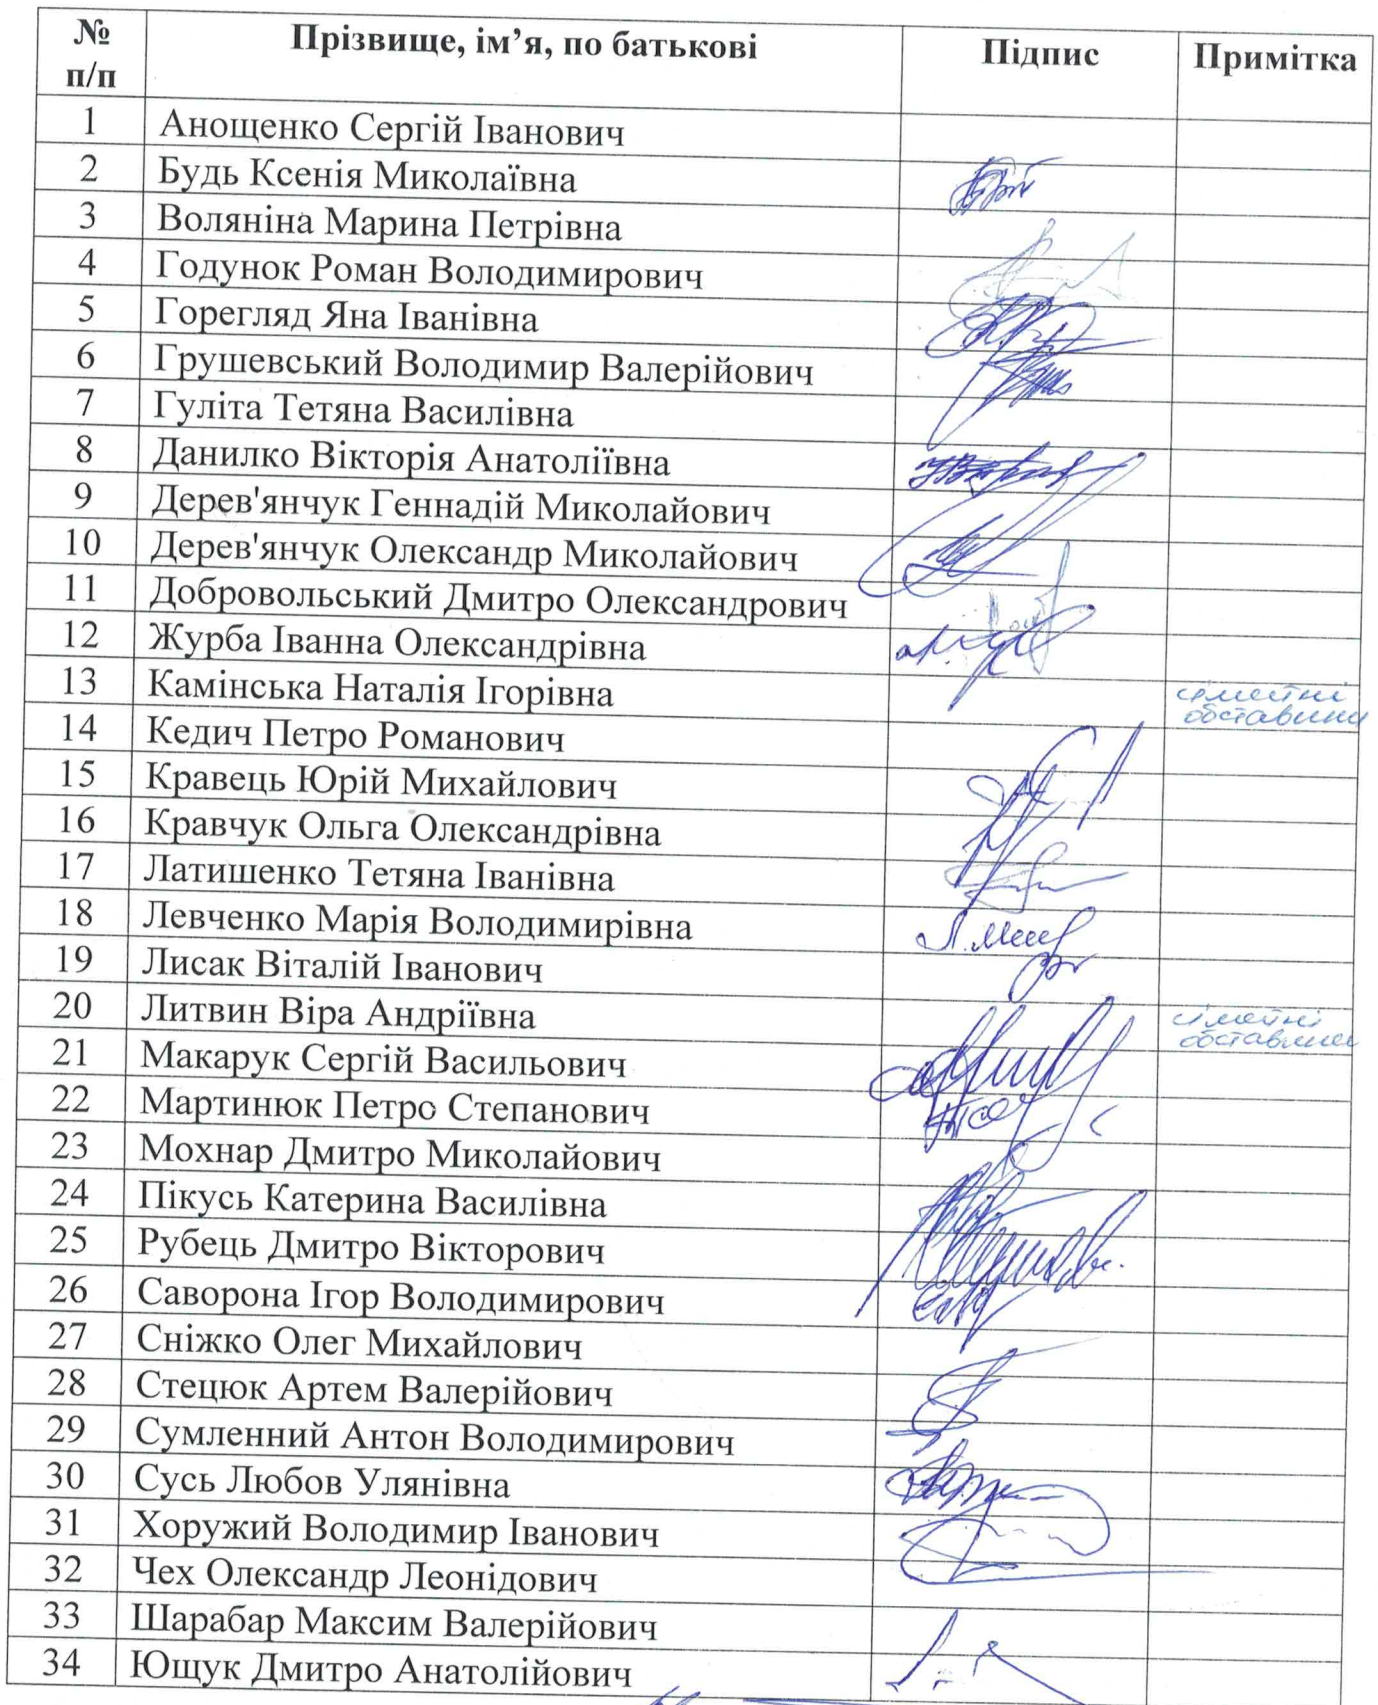 № п/п Прізвище, ім’я, по батькові Підпис Примітка
1 Анощенко Сергій Іванович
2 Будь Ксенія Миколаївна
3 Воляніна Марина Петрівна
4 Годунок Роман Володимирович
5 Горегляд Яна Іванівна
6 Грушевський Володимир Валерійович
7 Гуліта Тетяна Василівна
8 Данилко Вікторія Анатоліївна
9 Дерев'янчук Геннадій Миколайович
10 Дерев'янчук Олександр Миколайович
11 Добровольський Дмитро Олександрович
12 Журба Іванна Олександрівна
13 Камінська Наталія Ігорівна сімейні обставини
14 Кедич Петро Романович
15 Кравець Юрій Михайлович
16 Кравчук Ольга Олександрівна
17 Латишенко Тетяна Іванівна
18 Левченко Марія Володимирівна
19 Лисак Віталій Іванович
20 Литвин Віра Андріївна сімейні обставини
21 Макарук Сергій Васильович
22 Мартинюк Петро Степанович
23 Мохнар Дмитро Миколайович
24 Пікусь Катерина Василівна
25 Рубець Дмитро Вікторович
26 Саворона Ігор Володимирович
27 Сніжко Олег Михайлович
28 Стецюк Артем Валерійович
29 Сумленний Антон Володимирович
30 Сусь Любов Улянівна
31 Хоружий Володимир Іванович
32 Чех Олександр Леонідович
33 Шарабар Максим Валерійович
34 Ющук Дмитро Анатолійович